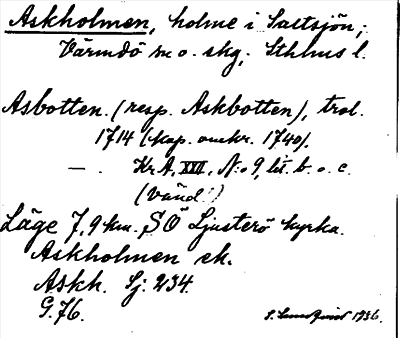 Askholmen, holme i Saltsjön,
Värmdö sn o. skg; Sthlms l.
Asbotten (resp. Askbotten), trol.
1714 (kop. omkr. 1740).
— . Kr A, XIII, N:o 9, lit. b. o. c.
(Vänd!)
Läge 7,9 km. SÖ Ljusterö kyrka.
Askholmen ek.
Askh. Sj: 234.
G. 76.
S. Lundqvist 1936.